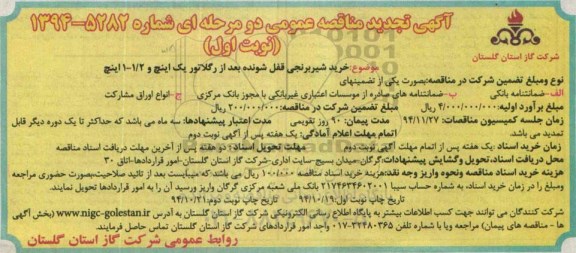 آگهی تجدید مناقصه عمومی دو مرحله ای شماره ۵۲۸۲-۱۳۹۴
(نوبت اول)
شرکت گاز استان گلستان
موضوع: خرید شیربرنجی قفل شونده بعد از رگلاتور یک اینچ و ۱/۲-۱ اینچ
نوع ومبلغ تضمین شرکت در مناقصه:بصورت یکی از تضمینهای
الف-ضمانتنامه بانکی ب-ضمانتنامه های صادره از موسسات اعتباری غیربانکی با مجوز بانک مرکزی ج-انواع اوراق مشارکت
مبلغ برآورد اولیه: ۴/۰۰۰/۰۰۰/۰۰۰ ریال مبلغ تضمین شرکت در مناقصه: ۲۰۰/۰۰۰/۰۰۰ ریال
زمان جلسه کمیسیون مناقصات: ۹۴/۱۱/۲۷ مدت پیمان: ۹۰ روز تقویمی مدت اعتبار پیشنهادها: سه ماه می باشد که حداکثر تا یک دوره دیگر قابل
تمدید می باشد. اتمام مهلت اعلام آمادگی: یک هفته پس از آگهی نوبت دوم
زمان خرید اسناد :یک هفته پس از اتمام مهلت آگهی نوبت دوم مهلت تحویل اسناد : دو هفته پس از آخرین مهلت دریافت اسناد مناقصه
محل دریافت اسناد،تحویل وگشایش پیشنهادات:گرگان-میدان بسیج-سایت اداری-شرکت گاز استان گلستان-امور قراردادها-اتاق ۳۰
هزینه خرید اسناد مناقصه ونحوه واریز وجه نقد:هزینه خرید اسناد مناقصه ۱۰۰/۰۰۰ ریال می باشد که میبایست بعد از تائید صلاحیت،بصورت حضوری مراجعه
ومبلغ را در زمان خرید اسناد، به شماره حساب سیبا ۲۱۷۴۶۳۴۶۰۲۰۰۱ بانک ملی شعبه مرکزی گرگان واریز ورسید آن را به امور قراردادها تحویل نمایند.
تاریخ چاپ نوبت اول:۹۴/۱۰/۱۹ تاریخ چاپ نوبت دوم:۹۴/۱۰/۲۱
شرکت کنندگان می توانند جهت کسب اطلاعات بیشتر به پایگاه اطلاع رسانی الکترونیکی شرکت گاز استان گلستان به آدرس www.nigc-golestan.ir (بخش آگهی
ها - مناقصه های پیمان) مراجعه ویا با شماره تلفن ۳۲۴۸۰۳۶۵-۰۱۷ واحد امور قراردادهای شرکت گاز استان گلستان تماس حاصل فرمایند.
روابط عمومی شرکت گاز استان گلستان